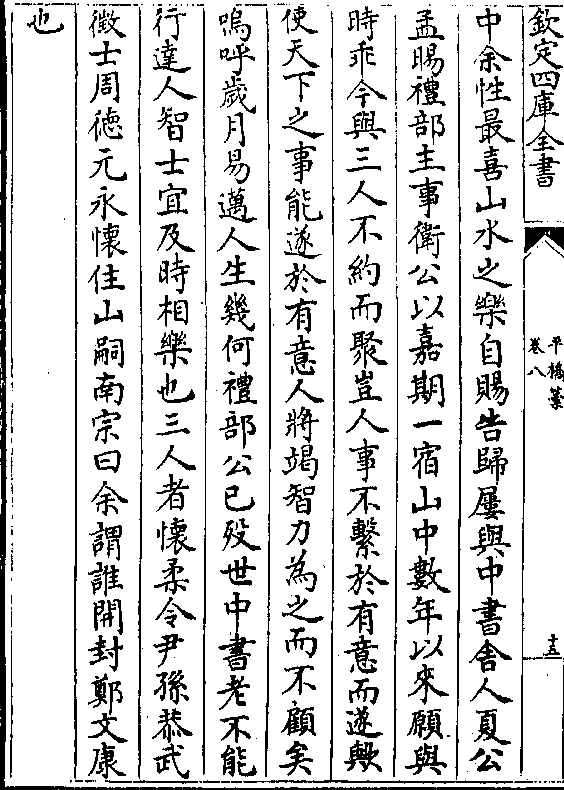 欽定四庫全書
平橋藳
卷八
十五
中余性最喜山水之樂自賜告歸屢與中書舍人夏公
孟暘禮部主事衛公以嘉期一宿山中數年以來願與
時乖今與三人不約而聚豈人事不繫於有意而遂歟
使天下之事能遂於有意人將竭智力為之而不顧矣
嗚呼歲月易邁人生幾何禮部公已殁世中書老不能
行達人智士宜及時相樂也三人者懷柔令尹孫恭武
徵士周德元永懷住山嗣南宗曰余謂誰開封鄭文康
也